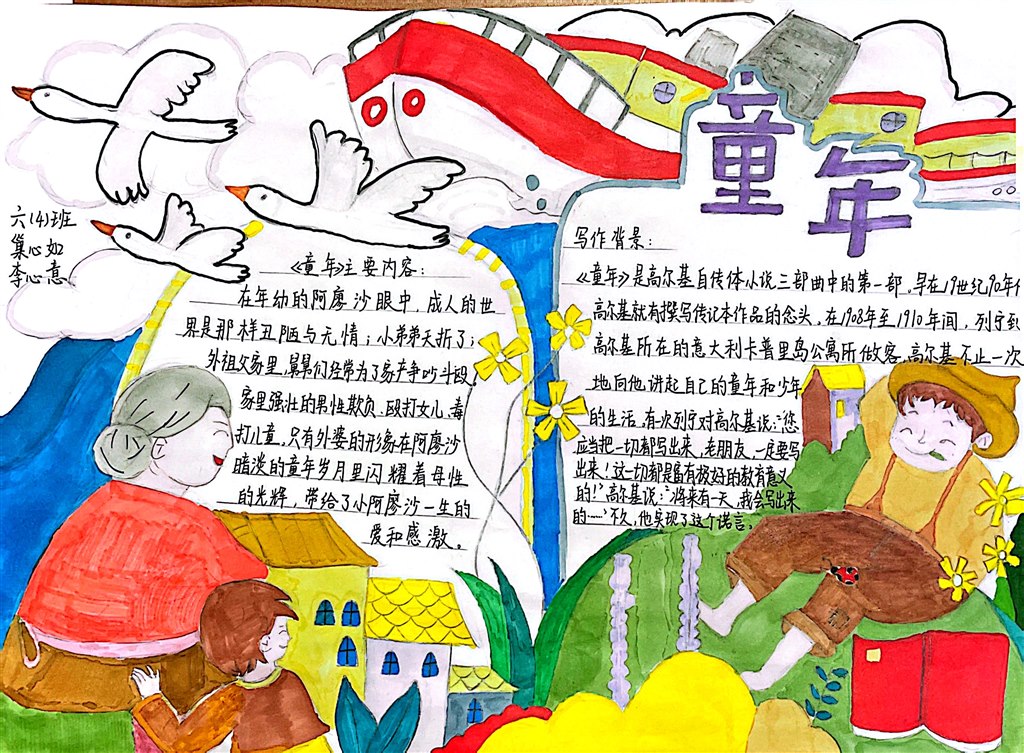 童年
六(4)班
巢心如
李心意
《童年》主要内容:
在年幼的阿廖沙眼中,成人的世
界是那样丑陋与无情;小弟弟夭折了;
外祖父家里,舅舅们经常为了家产争吵斗殴,
家里强壮的男性欺负、殴打女儿、毒
打儿童,只有外婆的形象在阿廖沙
暗淡的童年岁月里闪耀着母性
的光辉,带给了小阿廖沙一生的
爱和感激。
写作背景:
《童年》是高尔基自传体小说三部曲中的第一部,早在19世纪90年
高尔基就有撰写传记本作品的念头。在1908年至1910年间,列宁到
高尔基所在的意大利卡普里岛公寓所做客,高尔基不止一次
地向他讲起自己的童年和少年
的生活。有次列宁对高尔基说:“您
应当把一切都写出来,老朋友,一定要写
出来!这一切都是富有极好的教育意义
的!”高尔基说:“将来有一天,我会写出来
的……”不久,他实现了这个诺言。